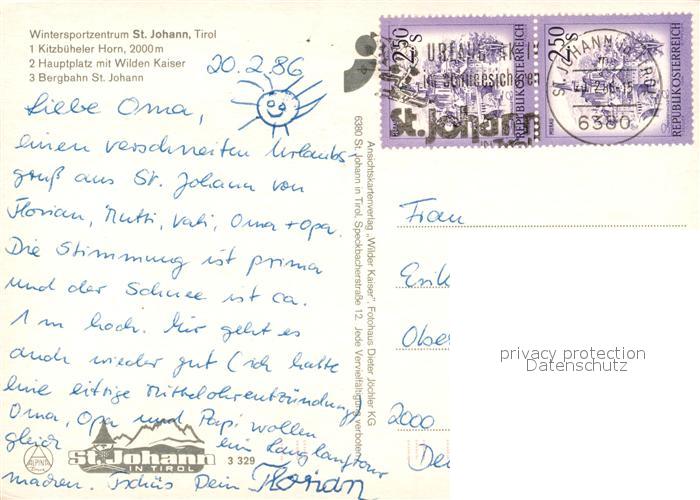 Wintersportzentrum St. Johann, Tirol
1 Kitzbüheler Horn, 2000 m
2 Hauptplatz mit Wilden Kaiser
3 Bergbahn St. Johann
20.2.86
Liebe Oma,
einen verschneiten Urlaubs-
gruß aus St. Johann von
Florian, Mutti, Vati, Oma + Opa.
Die Stimmung ist prima
und der Schnee ist ca.
1 m hoch. Mir geht es
auch wieder gut (ich hatte
eine eitrige Mittelohrentzündung)
Oma, Opa und Papi wollen
gleich ein Langlauftour
machen. Tschüs Dein Florian
St. Johann
IN TIROL
3 329
ALPINA
Ansichtskartenverlag „Wilder Kaiser", Fotohaus Dieter Jöchler KG
6380 St. Johann in Tirol, Speckbacherstraße 12. Jede Vervielfältigung verboten
2.50 S
REPUBLIK ÖSTERREICH
2.50 S
REPUBLIK ÖSTERREICH
schneesicheren
St. Johann
IN TIROL
ST. JOHANN
6380
Frau
Erik
Ober
2000
De
privacy protection
Datenschutz